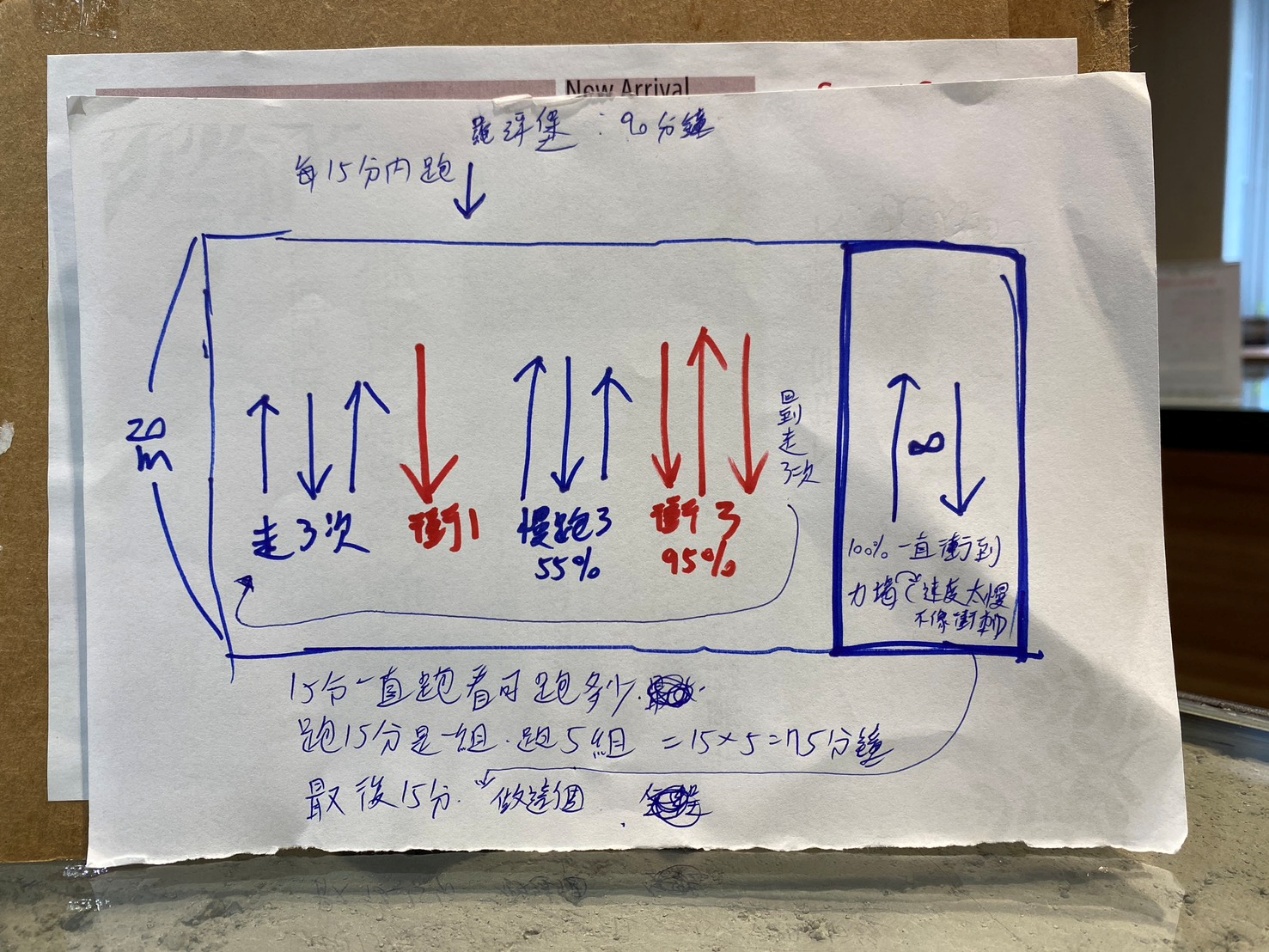 New Arrival
羅浮堡：90分鐘
每15分內跑
20m
走3次
衝1
慢跑3
55%
衝了3
95%
回到走3次
∞
100%一直衝到
力竭 速度太慢
不像衝刺
15分一直跑看可跑多少.
跑15分是一組.跑5組 =15×5=75分鐘
最後15分. 做這個